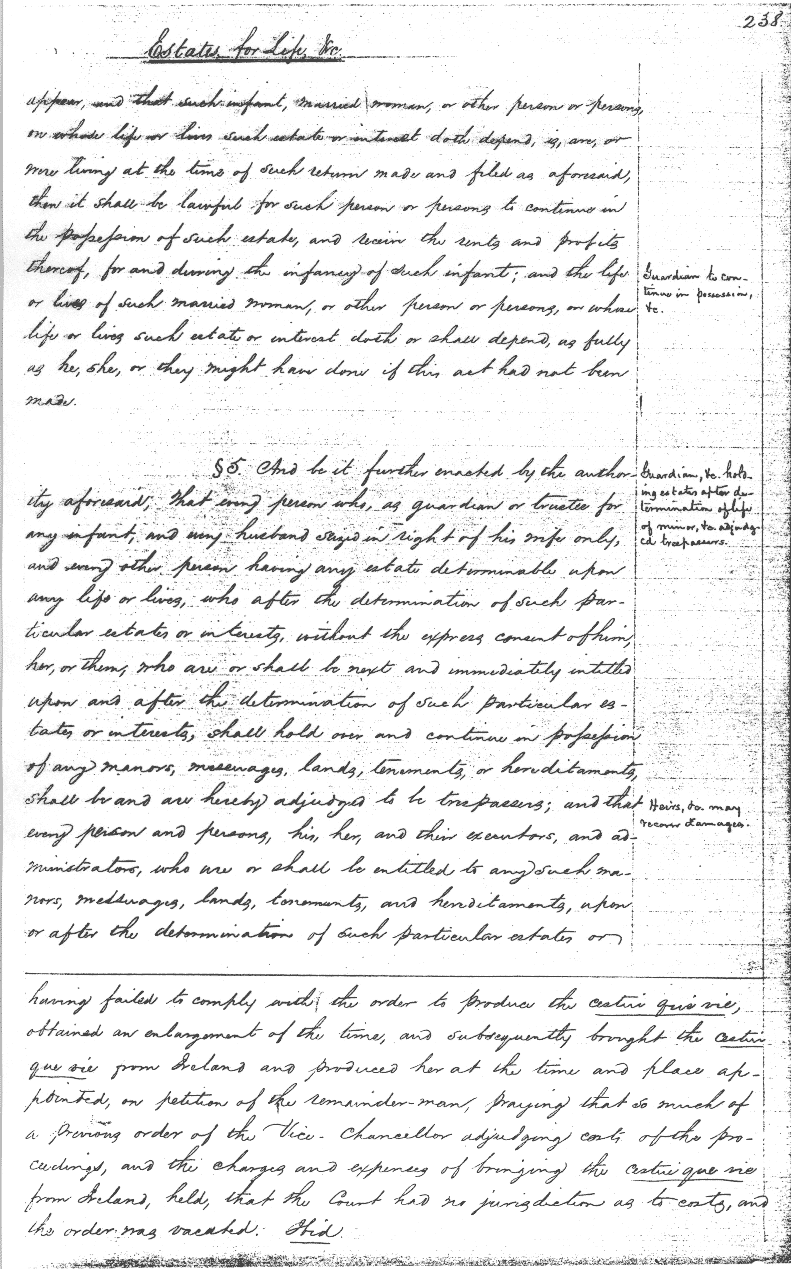 238
Estates for Life, &c.
appear, and that such infant, married woman, or other person or persons,
on whose life or lives such estate or interest doth depend, is, are, or
were living at the time of such return made and filed as aforesaid,
then it shall be lawful for such person or persons to continue in
the possession of such estate, and receive the rents and profits
thereof, for and during the infancy of such infant; and the life
or lives of such married woman, or other person or persons, on whose
life or lives such estate or interest doth or shall depend, as fully
as he, she, or they might have done if this act had not been
made.
Guardian to con-
tinue in possession,
&c.
§5. And be it further enacted by the author-
ity aforesaid, That every person who, as guardian or trustee for
any infant, and every husband seized in right of his wife only,
and every other person having any estate determinable upon
any life or lives, who after the determination of such par-
ticular estates or interests, without the express consent of him,
her, or them, who are or shall be next and immediately intitled
upon and after the determination of such particular es-
tates or interests, shall hold over and continue in possession
of any manors, messuages, lands, tenements, or hereditaments,
shall be and are hereby adjudged to be trespassers; and that
every person and persons, his, her, and their executors, and ad-
ministrators, who are or shall be entitled to any such ma-
nors, messuages, lands, tenements, and hereditaments, upon
or after the determination of such particular estates or
Guardian, &c. hold-
ing estates after de-
termination of life
of minor, &c. adjudg-
ed trespassers.
Heirs, &c. may
recover damages.
having failed to comply with the order to produce the cestui que vie,
obtained an enlargement of the time, and subsequently brought the cestui
que vie from Ireland and produced her at the time and place ap-
pointed, on petition of the remainder-man, praying that so much of
a previous order of the Vice-Chancellor adjudging costs of the pro-
ceedings, and the charges and expenses of bringing the cestui que vie
from Ireland, held, that the Court had no jurisdiction as to costs, and
the order was vacated. Ibid.